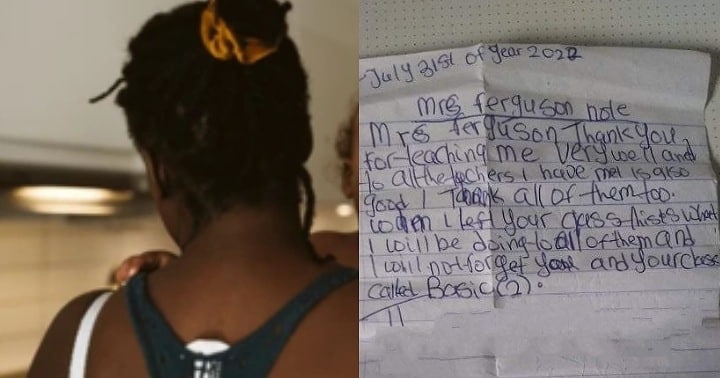 July 31st of year 2022
Mrs ferguson note
Mrs ferguson Thank you
for teaching me very well and
to all the teachers I have met is also
good I Thank all of them too.
when I left your class thists what
I will be doing to all of them and
I will not forget your and your class
called Basic (2).